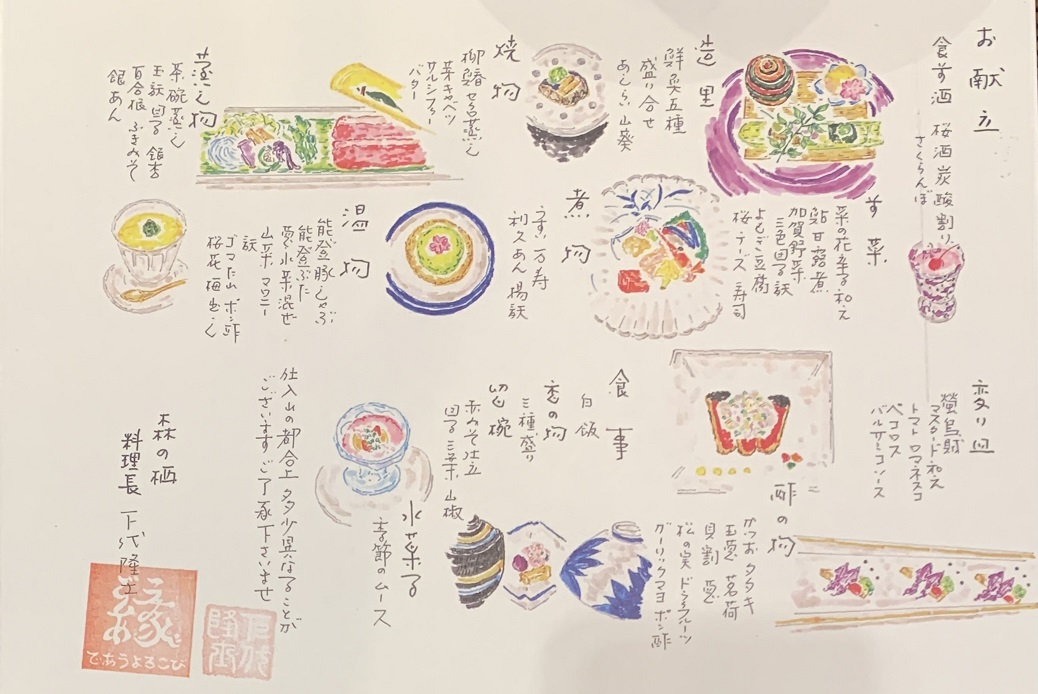 お献立
食前酒 桜酒炭酸割り
さくらんぼ
前菜
菜の花辛子和え
鮎甘露煮
加賀野菜
三色団子
よもぎ豆腐
桜チーズ寿司
造里
鮮魚五種
盛り合せ
あしらい 山葵
焼物
柳鰆せいろ蒸し
芽キャベツ
サルシファー
バター
蒸し物
茶碗蒸し
百合根
銀あん
煮物
うすい万寿
利久あん
温物
能登豚しゃぶ
能登ぶた
葱 水菜混ぜ
山菜 マカロニ
ゴマだれ ポン酢
変り皿
螢烏賊
マスタード和え
トマト ロマネスコ
ペコロス
バルサミコソース
酢の物
カツオタタキ
玉葱 茗荷
貝割 葱
松の実 ドライフルーツ
ガーリックマヨ ポン酢
食事
白飯
香の物
三種盛り
留椀
赤みそ仕立
三葉 山椒
水菓子
季節のムース
仕入れの都合上 多少異なることが
ございます ご了承下さいませ
森の栖
料理長 下代隆士
縁
であうよろこび